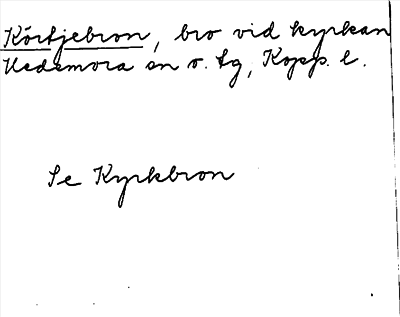 Körtjebron, bro vid kyrkan
Hedemora sn o. tg, Kopp. l.
Se Kyrkbron